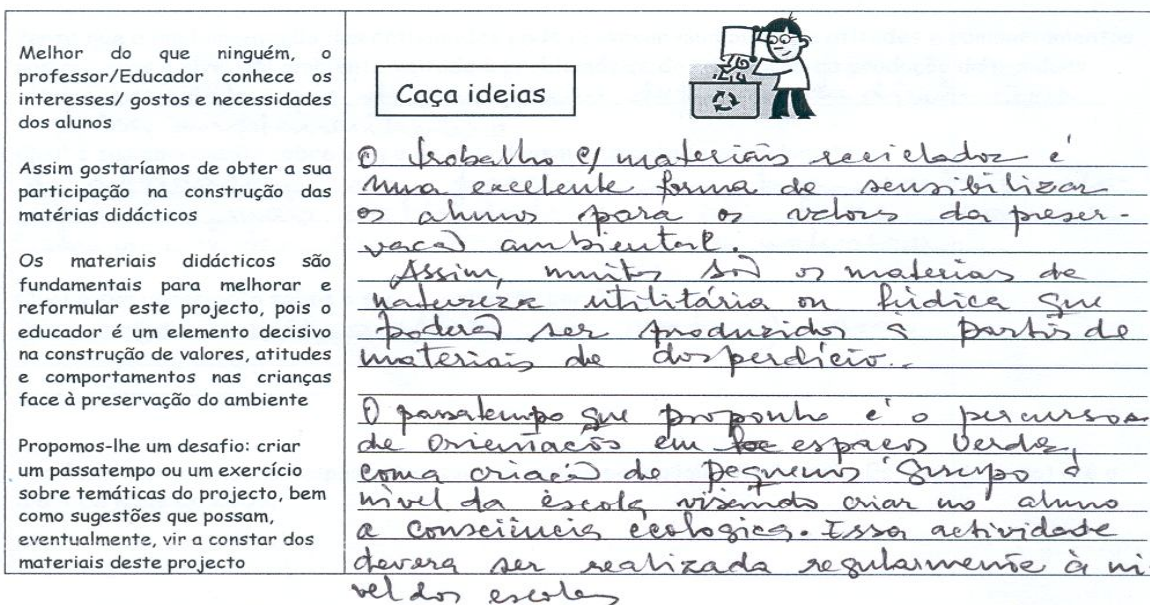 Melhor do que ninguém, o
professor/Educador conhece os
interesses/ gostos e necessidades
dos alunos
Assim gostaríamos de obter a sua
participação na construção das
matérias didácticos
Os materiais didácticos são
fundamentais para melhorar e
reformular este projecto, pois o
educador é um elemento decisivo
na construção de valores, atitudes
e comportamentos nas crianças
face à preservação do ambiente
Propomos-lhe um desafio: criar
um passatempo ou um exercício
sobre temáticas do projecto, bem
como sugestões que possam,
eventualmente, vir a constar dos
materiais deste projecto
Caça ideias
O trabalho c/ materiais reciclados é
uma excelente forma de sensibilizar
os alunos para os valores da preser-
vação ambiental.
Assim, muitos são os materias de
natureza utilitária ou lúdica que
poderão ser produzidos à partir de
materiais de desperdício..
O passatempo que proponho é o percursos
de orientações em espaços verdes,
com a criação de pequenos grupo à
nível da escola visando criar no aluno
a consciência ecologica. Essa actividade
devera ser realizada regularmente à ni-
vel das escolas